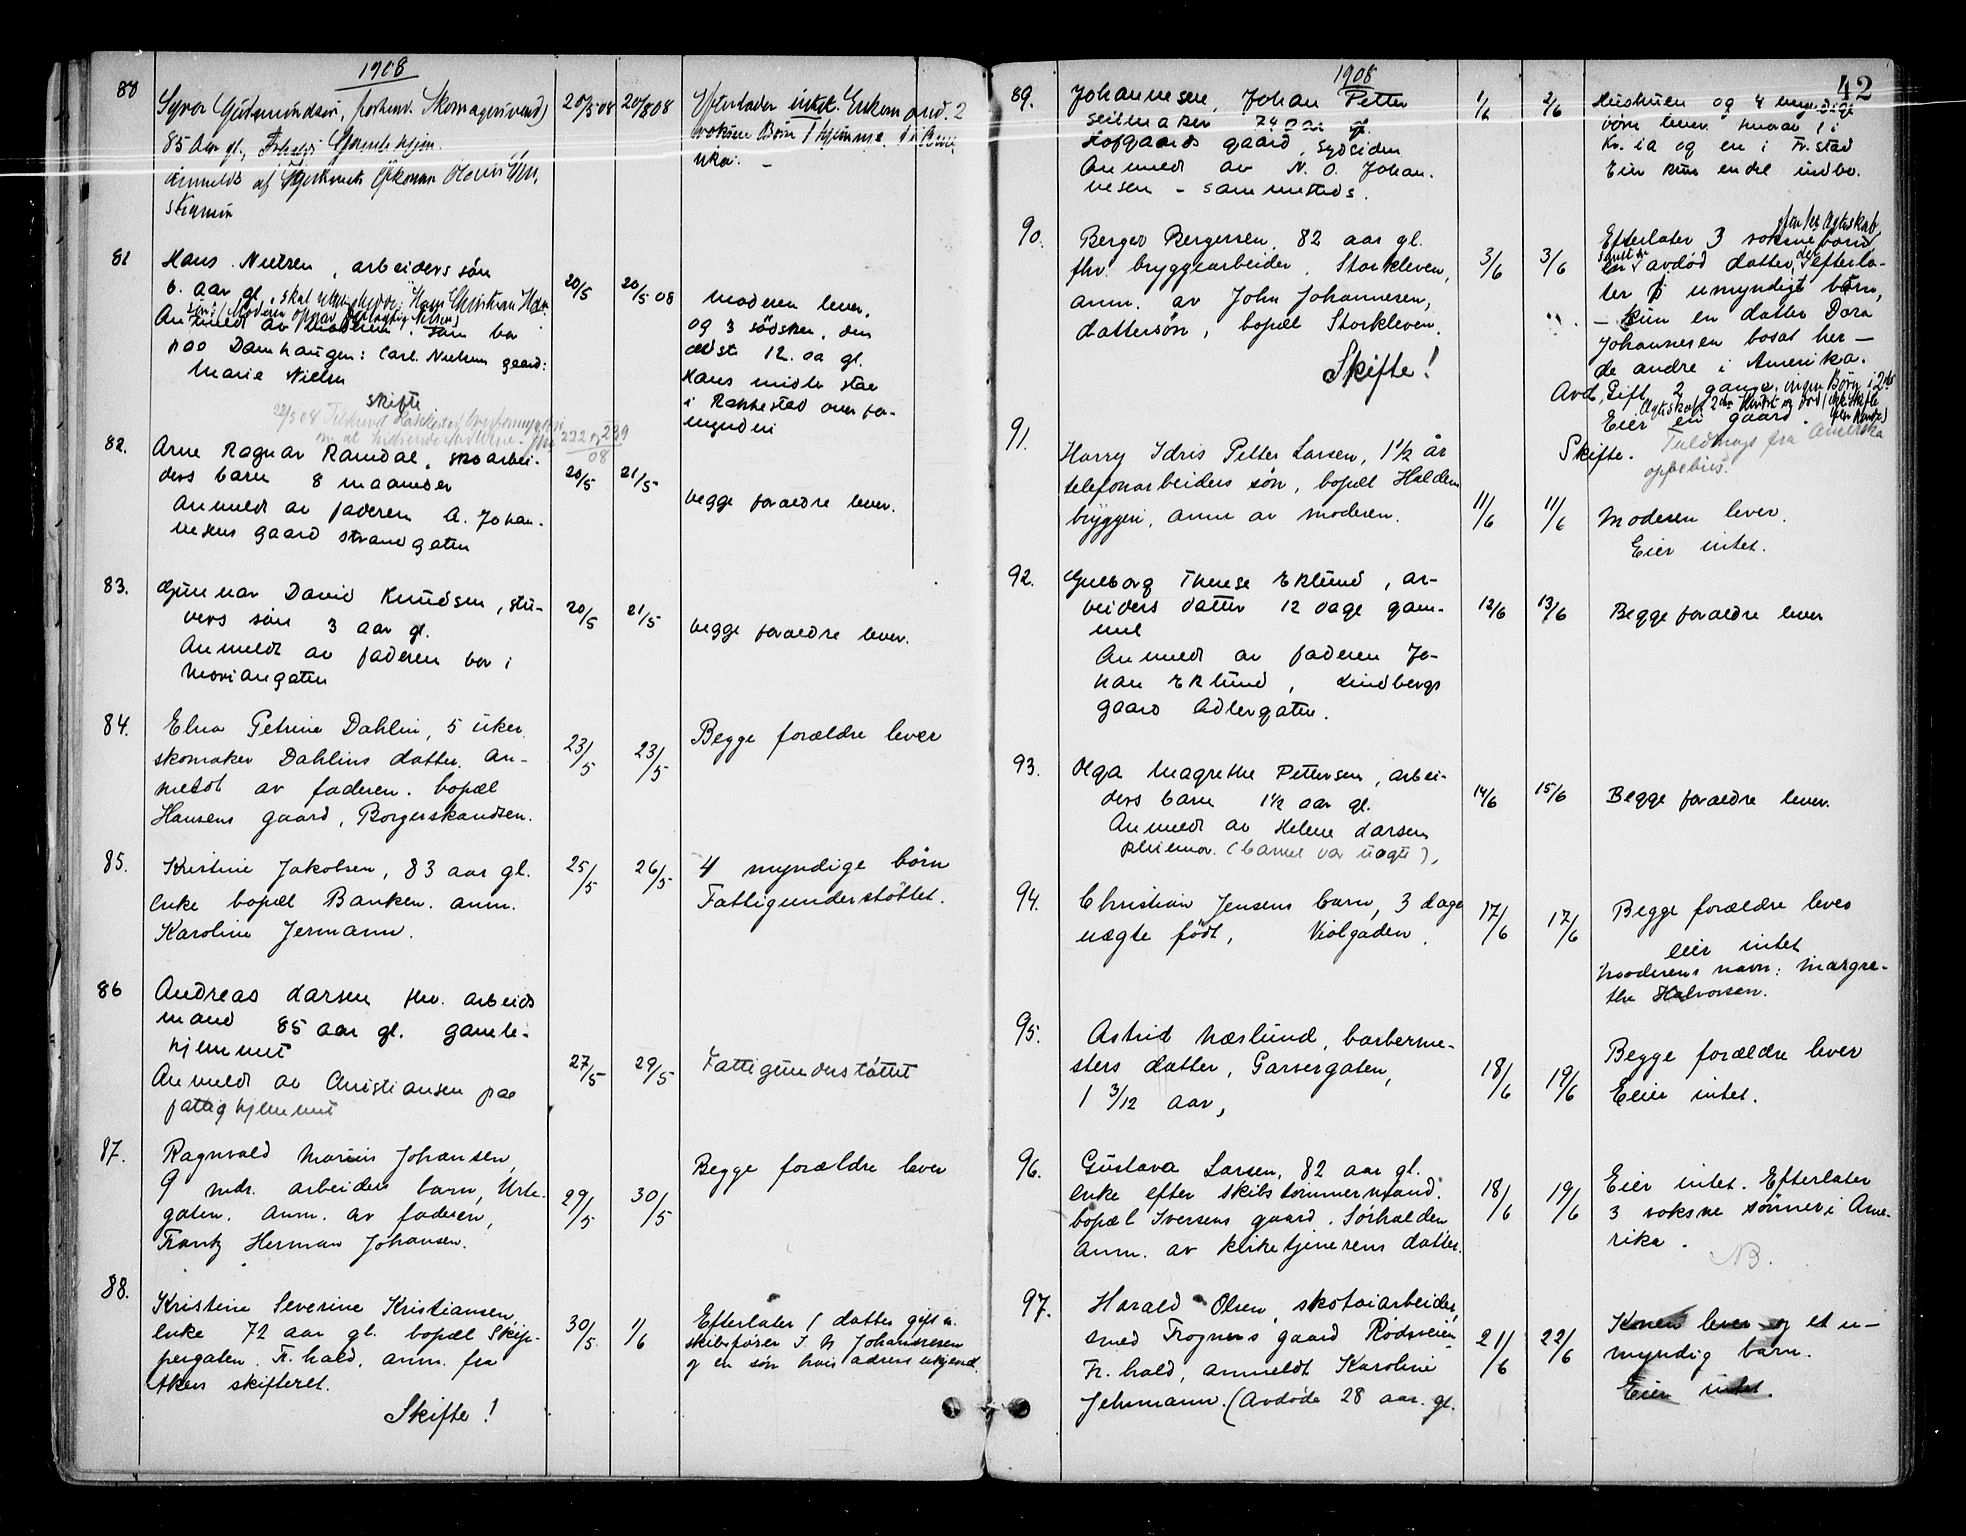 1908
80
Syver Gudmundsen, forhend. Skomagersvend)
20/5 08
20/5 08
Efterlader intet. Enkem and. 2
85 Aar gl,
voksne Børn 1 hjemme
anmeldt af
81
Hans Nielsen, arbeiders søn
6. aar gl. skal
20/5
20/5 08
moderen lever,
og 3 södsken, den
ældst 12. aa gl.
Anmeldt av moderen som bor
paa Damhaugen: Carl Nielsens gaard:
Marie Nielsen
Hans midler staar
i Rakkestad over for-
mynderi
Skifte
22/5 08
82.
Arne Ragnar Ramdal, skoarbei-
ders barn 8 maaneder
20/5
21/5
begge foraeldre lever.
Anmeldt av faderen A. Johan-
nesens gaard strandgaten
83.
Gunnar David Knudsen, stu-
vers søn 3 aar gl.
20/5
21/5
begge foraeldre lever.
Anmeldt av faderen bor i
Moriangaten
84.
Elna Petrine Dahlin, 5 uker
skomaker Dahlins datter. An-
meldt av faderen. bopæl
Hansens gaard, Borgerskandsen.
23/5
23/5
Begge forældre lever
85.
Kristine Jakobsen, 83 aar gl.
enke bopæl Banken. anm.
Karoline Jermann.
25/5
26/5
4 myndige børn
Fattigunderstøttet.
86
Andreas Larsen fhv. arbeids
mand 85 aar gl. gamle-
hjemmet
Anmeldt av Christiansen paa
fattighjemmet
27/5
29/5
Fattigunderstøttet
87.
Ragnvald Marius Johansen,
9 mdr. arbeiders barn, Urte-
gaten. Anm. av faderen,
Frantz Herman Johansen.
29/5
30/5
Begge forældre lever
88.
Kristine Severine Kristiansen
enke 72 aar gl. bopæl Skip-
pergaten. Fr. hald, anm. fra
Aker skifteret.
30/5.
1/6
Efterlater 1 datter gift m.
skibsfører J. N Johannesen
og en søn hvis adress ukjend.
Skifte!
1908
42
89.
Johannesen, Johan Petter
seilmaker 74 aar gl.
Hofgaards gaard, Sydsiden
Anmeldt av N. O. Johan-
nesen - sammesteds.
1/6
2/6
Hustruen og 4 myndige
børn lever hvorav 1 i
Kr. ia og en i Fr. stad
Eier kun endel indbo.
90.
Berger Bergersen, 82 aar gl.
fhv. bryggearbeider. Storkleven,
anm. av John Johannesen,
dattersøn, bopæl Storkleven.
Skifte!
3/6
3/6
Efterlater 3 voksne børn
en avdød datter, der efterla-
ter umyndige børn,
– kun en datter Dora
Johannesen bosat her –
de andre i Amerika.
Avd. Gift 2 gange, ingen Børn i 2det
Eier en gaard.
Skifte. Fuldmagt fra Amerika
91.
Harry Idris Petter Larsen, 1½ år
telefonarbeiders søn, bopæl Haldens
bryggeri, anm av moderen.
11/6
11/6
Moderen lever.
Eier intet.
92.
Gulborg Therese Eklund, ar-
beiders datter 12 dage gam-
mel
Anmeldt av faderen Jo-
han Eklund, Lindbergs
gaard Adlergaten.
12/6
13/6
Begge foraeldre lever
93.
Olga Magrethe Pettersen, arbei-
ders barn 1½ aar gl.
Anmeldt av Helene Larsen
pleiemor. (barnet var uægte),
14/6
15/6
Begge foraeldre lever.
94.
Christian Jensens barn, 3 dage
uægte født, Violgaden.
17/6
17/6
Begge forældre lever
eier intet
Moderens navn: Margre-
the Halvorsen.
95.
Astrid Næslund, barberme-
sters datter, Garvergaten,
1 3/12 aar,
18/6
19/6
Begge forældre lever
Eier intet.
96.
Gustava Larsen, 82 aar gl.
enke efter skibstømmermand.
bopæl Iversens gaard. Sørhalden
anm. av kirketjenerens datter.
18/6
19/6
Eier intet. Efterlater
3 voksne sønner i Ame-
rika.
NB.
97.
Harald Olsen, skotøiarbeider,
smed Trogners gaard Rødsveien
Fr. hald, anmeldt Karoline
Jehrmann. (Avdøde 28 aar gl.
21/6
22/6
Konen lever og et u-
myndig barn.
Eier intet.